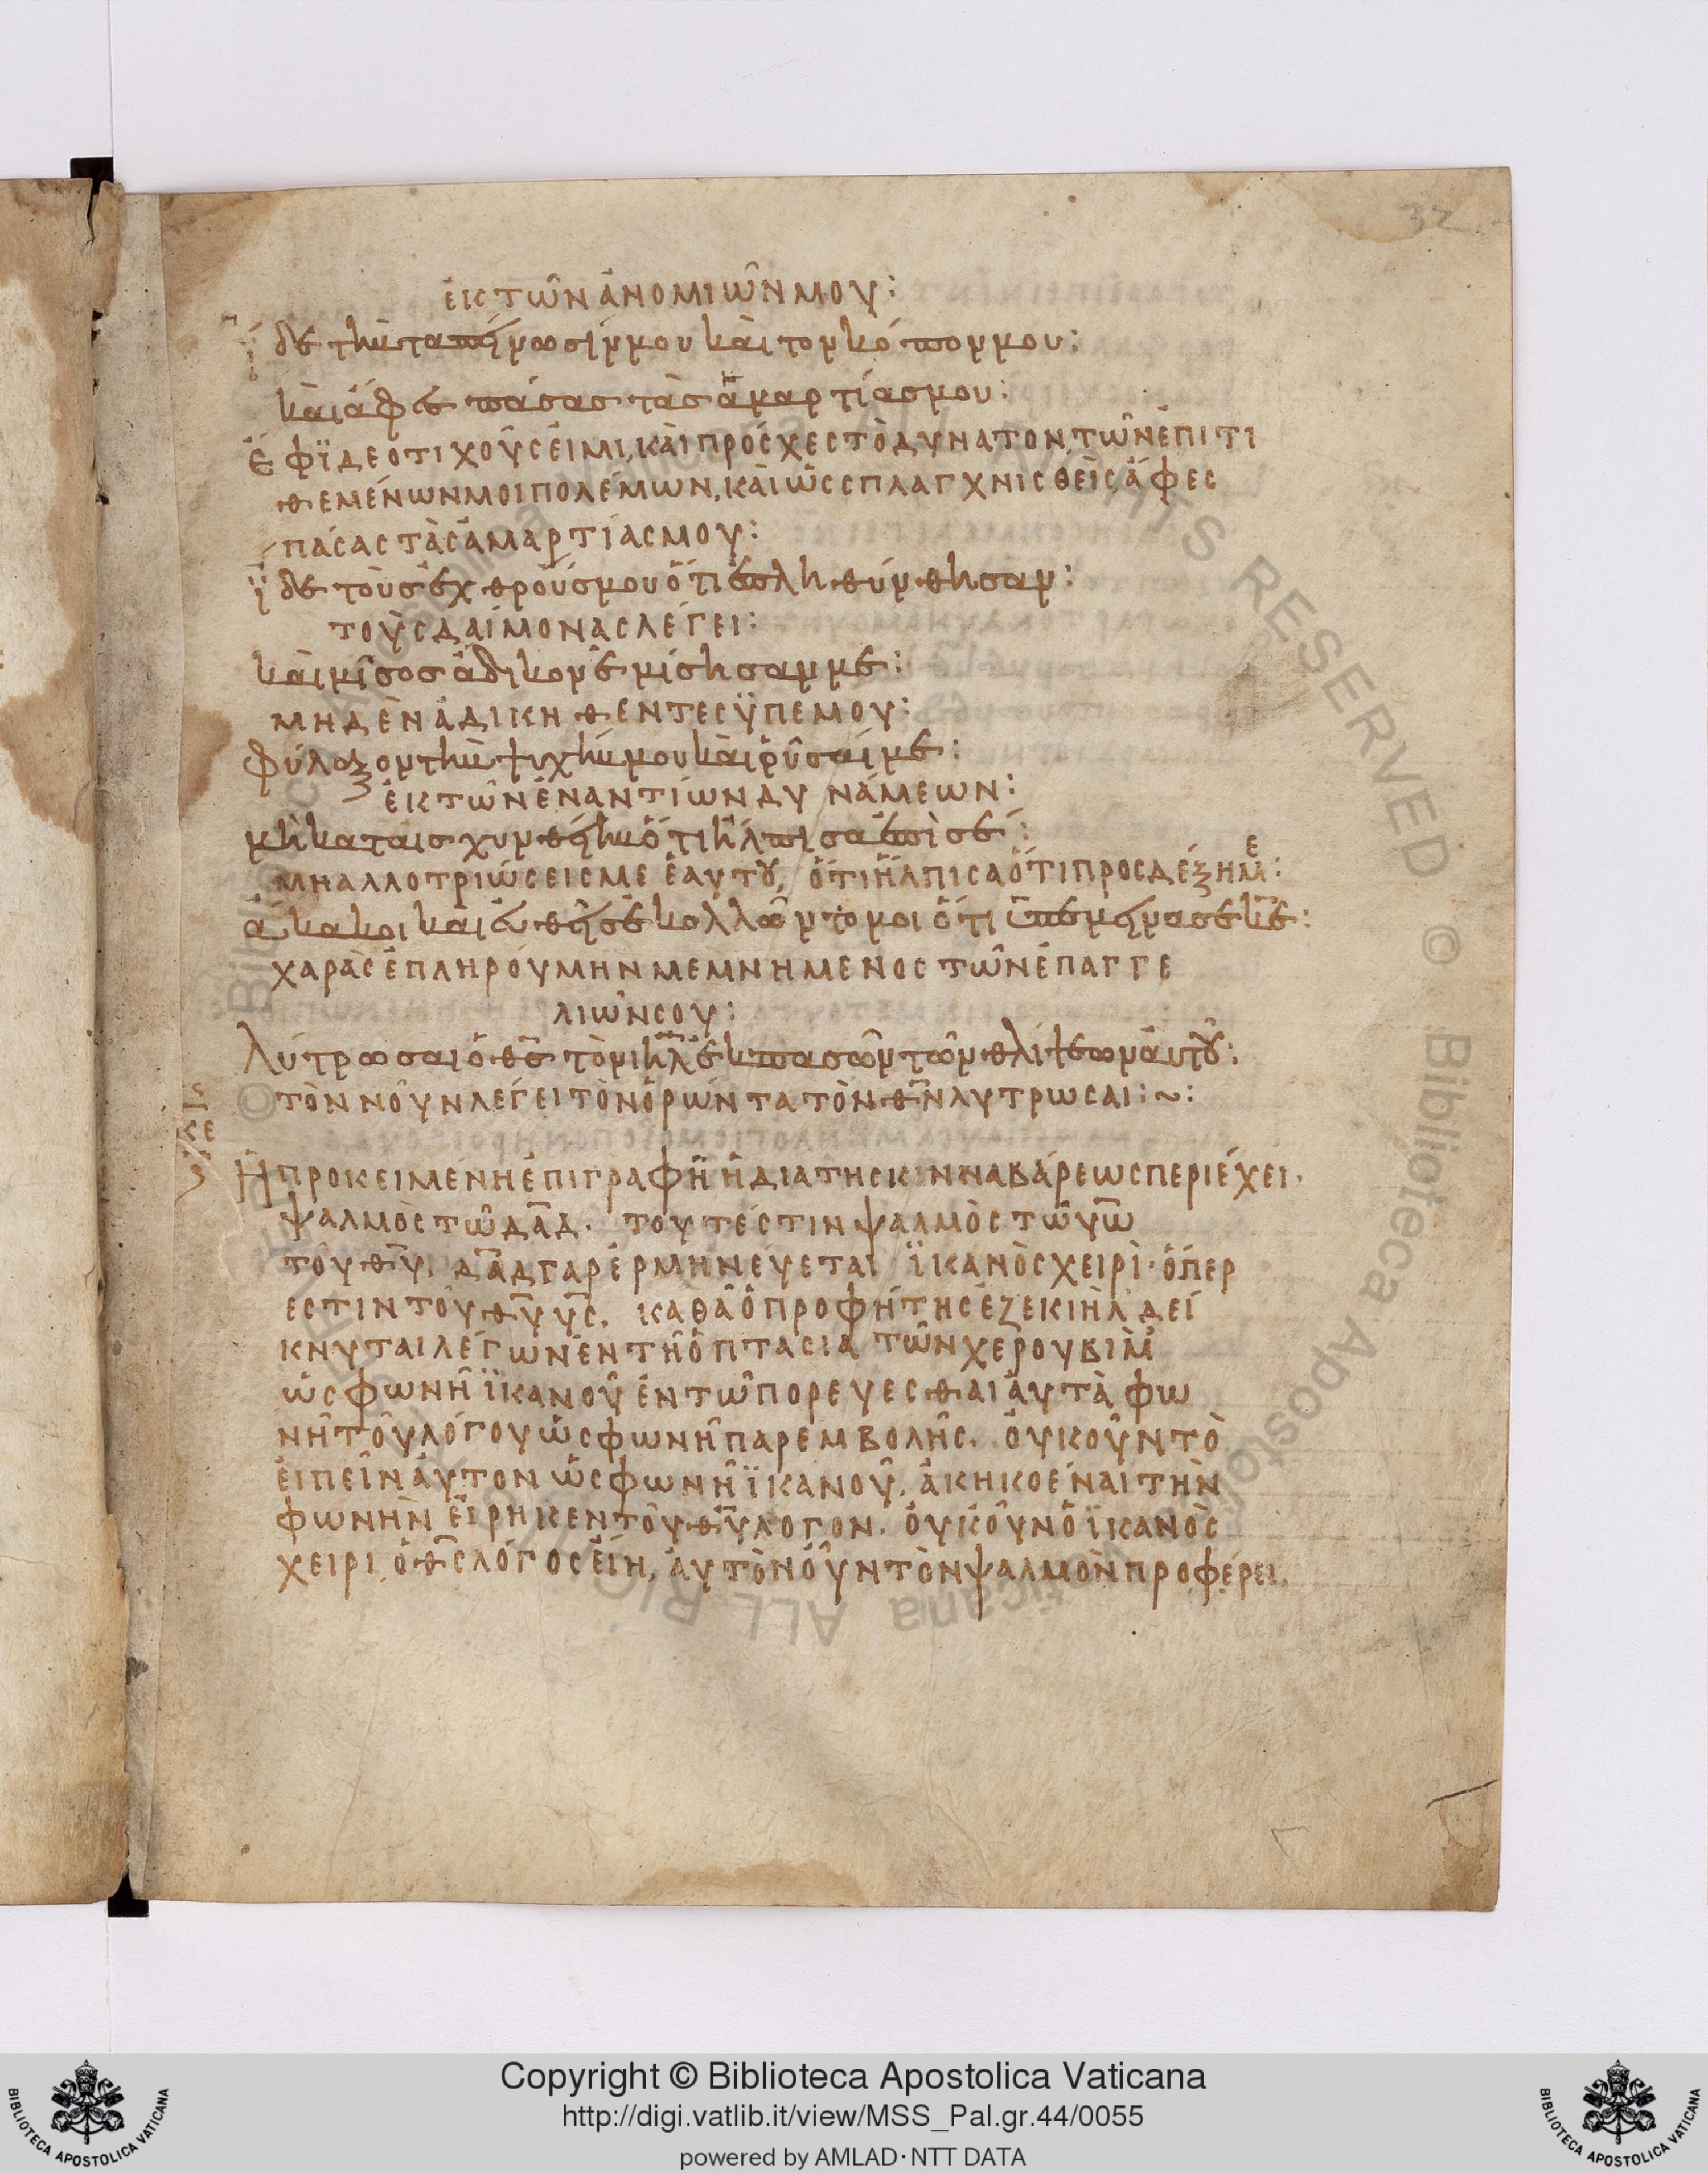 32
ἐκ τῶν ἀνομιῶν μου:
ἴδε τὴν ταπείνωσίν μου καὶ τὸν κόπον μου:
καὶ ἄφες πάσας τὰς ἁμαρτίας μου:
Ἔφϊδε ὅτι χοῦς εἰμι, καὶ πρόσχες τὸ δυνατὸν, τῶν ἐπιτι
θεμένων μοι πολέμων, καὶ ὡς σπλαγχνισθεὶς, ἄφες
πάσας τὰς ἁμαρτίας μου:
ἴδε τοὺς ἐχθρούς μου ὅτι ἐπληθύνθησαν:
τοὺς δαίμονας λέγει:
καὶ μῖσος ἄδικον ἐμίσησάν με:
μηδὲν ἀδικηθέντες ὑπ' ἐμοῦ:
Φύλαξον τὴν ψυχήν μου καὶ ῥῦσαί με:
ἐκ τῶν ἐναντίων δυνάμεων:
μὴ καταισχυνθείην ὅτι ἤλπισα ἐπὶ σέ:
μὴ ἀλλοτριώσεις με ἑαυτοῦ, ὅτι ἤλπισα ὅτι προσδέξη με:
ἄκακοι καὶ εὐθεῖς ἐκολλῶντό μοι ὅτι ὑπέμεινά σε κε:
χαρᾶς ἐπληρούμην μεμνημένος τῶν ἐπαγγε
λιῶν σου:
Λύτρωσαι ὁ θς τὸν ιηλ ἐκ πασῶν τῶν θλίψεων αὐτοῦ:
τὸν νοῦν λέγει τὸν ὁρῶντα τὸν θν λύτρωσαι:~:
κε
Ἡ προκειμένη ἐπιγραφὴ ἡ διὰ τῆς κινναβάρεως περιέχει.
ψαλμὸς τῷ δαδ. τουτέστιν ψαλμὸς τῷ υω
τοῦ θυ. δαδ γὰρ ἑρμηνεύεται ἱκανὸς χειρὶ. ὅπερ
ἐστιν τοῦ θυ υς. καθὰ ὁ προφήτης ἐζεκιὴλ δεί
κνυται λέγων ἐν τῇ ὀπτασία τῶν χερουβὶμ
ὡς φωνὴ ἱκανοῦ ἐν τῷ πορεύεσθαι αὐτὰ φω
νὴ τοῦ λόγου ὡς φωνὴ παρεμβολῆς. οὐκοῦν τὸ
εἰπεῖν αὐτὸν ὡς φωνὴ ἱκανοῦ, ἀκηκοέναι τὴν
φωνὴν εἴρηκεν τοῦ θυ λόγον. οὐκοῦν ὁ ἱκανὸς
χειρὶ, ὁ θς λόγος εἴη, αὐτὸν οὖν τὸν ψαλμὸν προφέρει.
Copyright © Biblioteca Apostolica Vaticana
http://digi.vatlib.it/view/MSS_Pal.gr.44/0055
powered by AMLAD·NTT DATA
BIBLIOTECA APOSTOLICA VATICANA
BIBLIOTECA APOSTOLICA VATICANA